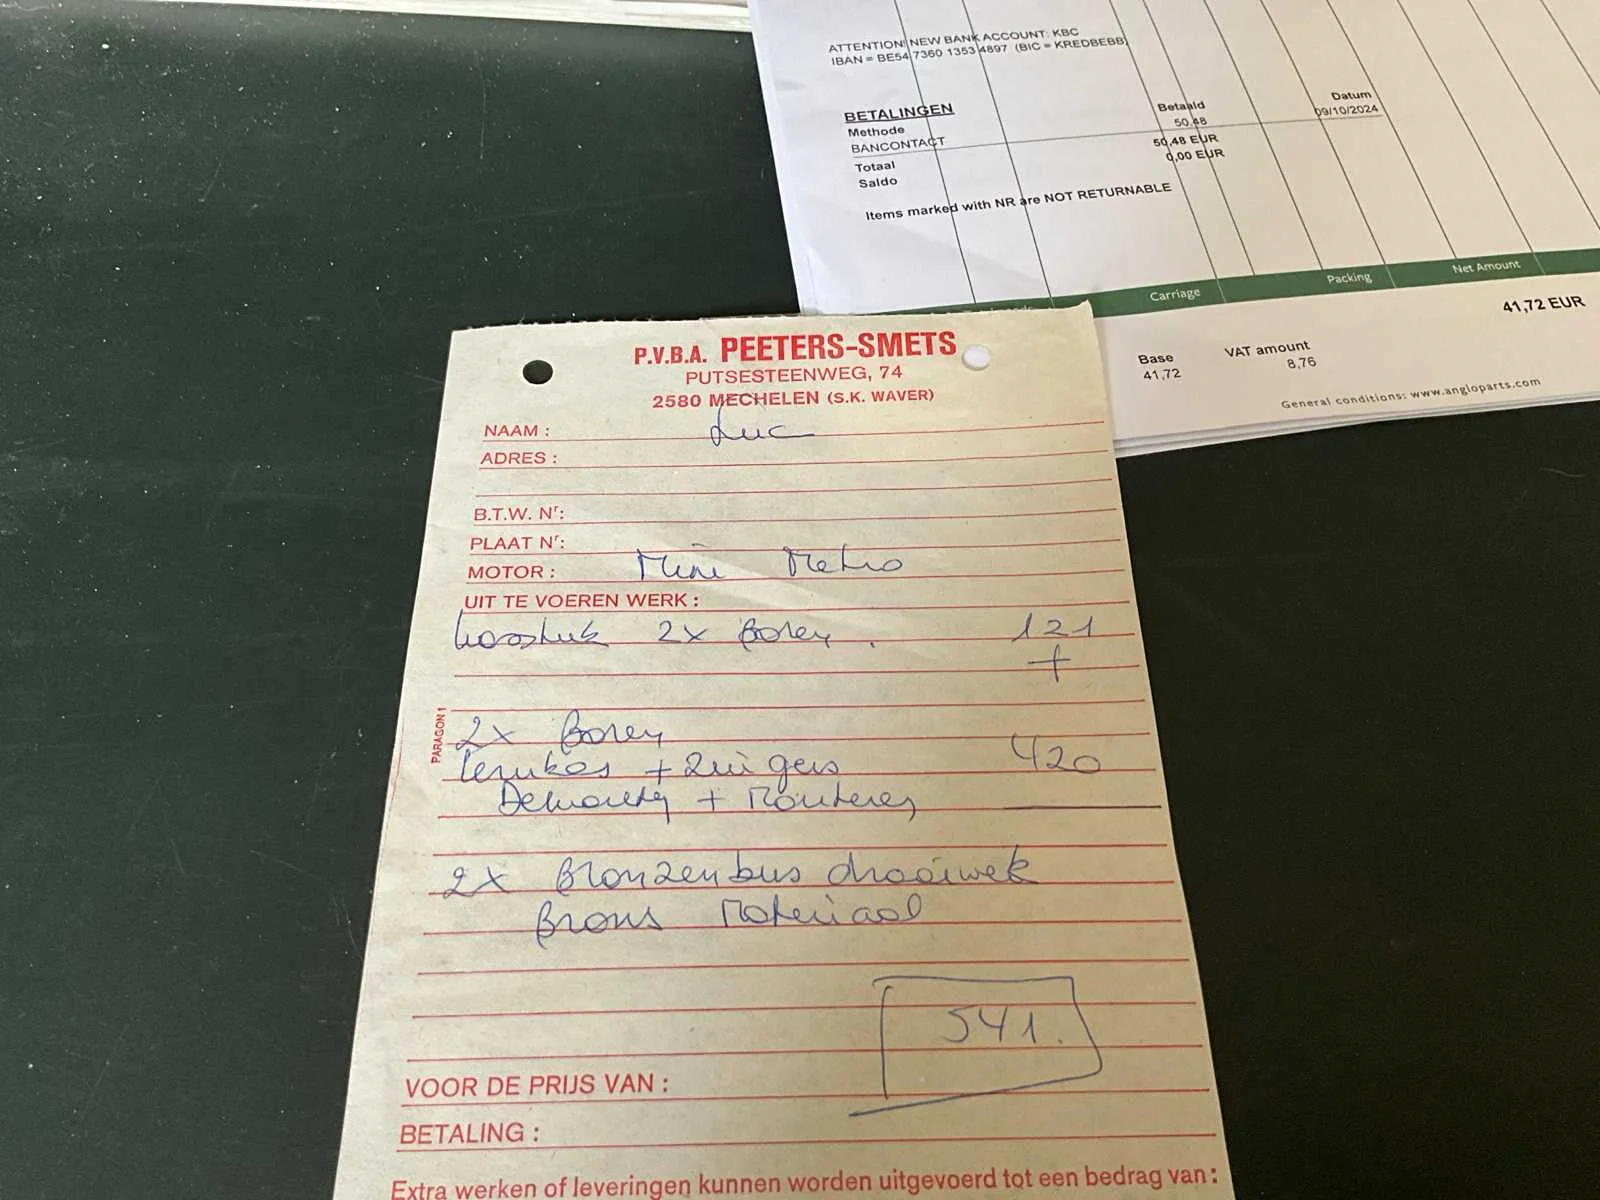 ATTENTION! NEW BANK ACCOUNT: KBC
IBAN = BE54 7360 1353 4897 (BIC = KREDBEBB)
BETALINGEN Betaald Datum
Methode 50,48 09/10/2024
BANCONTACT
Totaal 50,48 EUR
Saldo 0,00 EUR
Items marked with NR are NOT RETURNABLE
Carriage Packing Net Amount
41,72 EUR
Base VAT amount
41,72 8,76
General conditions: www.angloparts.com
P.V.B.A. PEETERS-SMETS
PUTSESTEENWEG, 74
2580 MECHELEN (S.K. WAVER)
NAAM : Luc
ADRES :
B.T.W. Nr:
PLAAT Nr:
MOTOR : Mini Metro
UIT TE VOEREN WERK :
2x Boren . 121
+
PARAGON 1
2x Boren
+ Zuigers 420
+ Monteren
2x Bronzenbus draaiwerk
Brons Materiaal
541.
VOOR DE PRIJS VAN :
BETALING :
Extra werken of leveringen kunnen worden uitgevoerd tot een bedrag van :